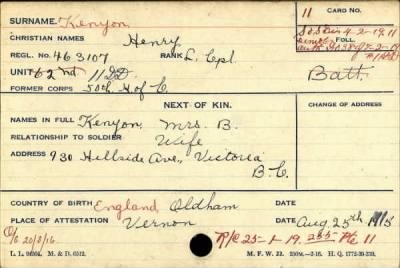 SURNAME. Kenyon 11 CARD NO.
CHRISTIAN NAMES Henry
REGL. NO. 463107 RANK L. Cpl. FOLL.
UNIT 62nd 11 D.D. Batt.
FORMER CORPS 50th H. of C.
NEXT OF KIN. CHANGE OF ADDRESS
NAMES IN FULL Kenyon, Mrs. B.
RELATIONSHIP TO SOLDIER Wife
ADDRESS 930 Hillside Ave, Victoria
B.C.
COUNTRY OF BIRTH England Oldham DATE
PLACE OF ATTESTATION Vernon DATE Aug. 25th 1915
O/S 20/3/16 R/C 25-1-19. 11
L. L. M. & D. 6512. M. F. W. 22. H. Q. 1772-39-339.